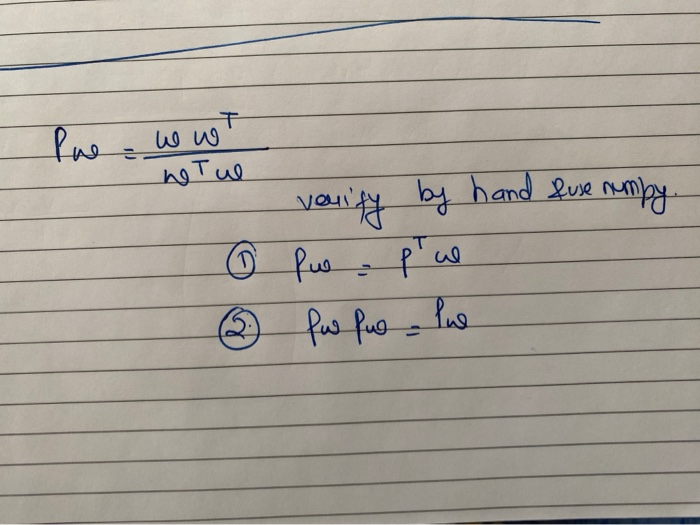 Pw = w wᵀ / wᵀw
verify by hand & use numpy.
① Pw = Pᵀw
② Pw Pw = Pw